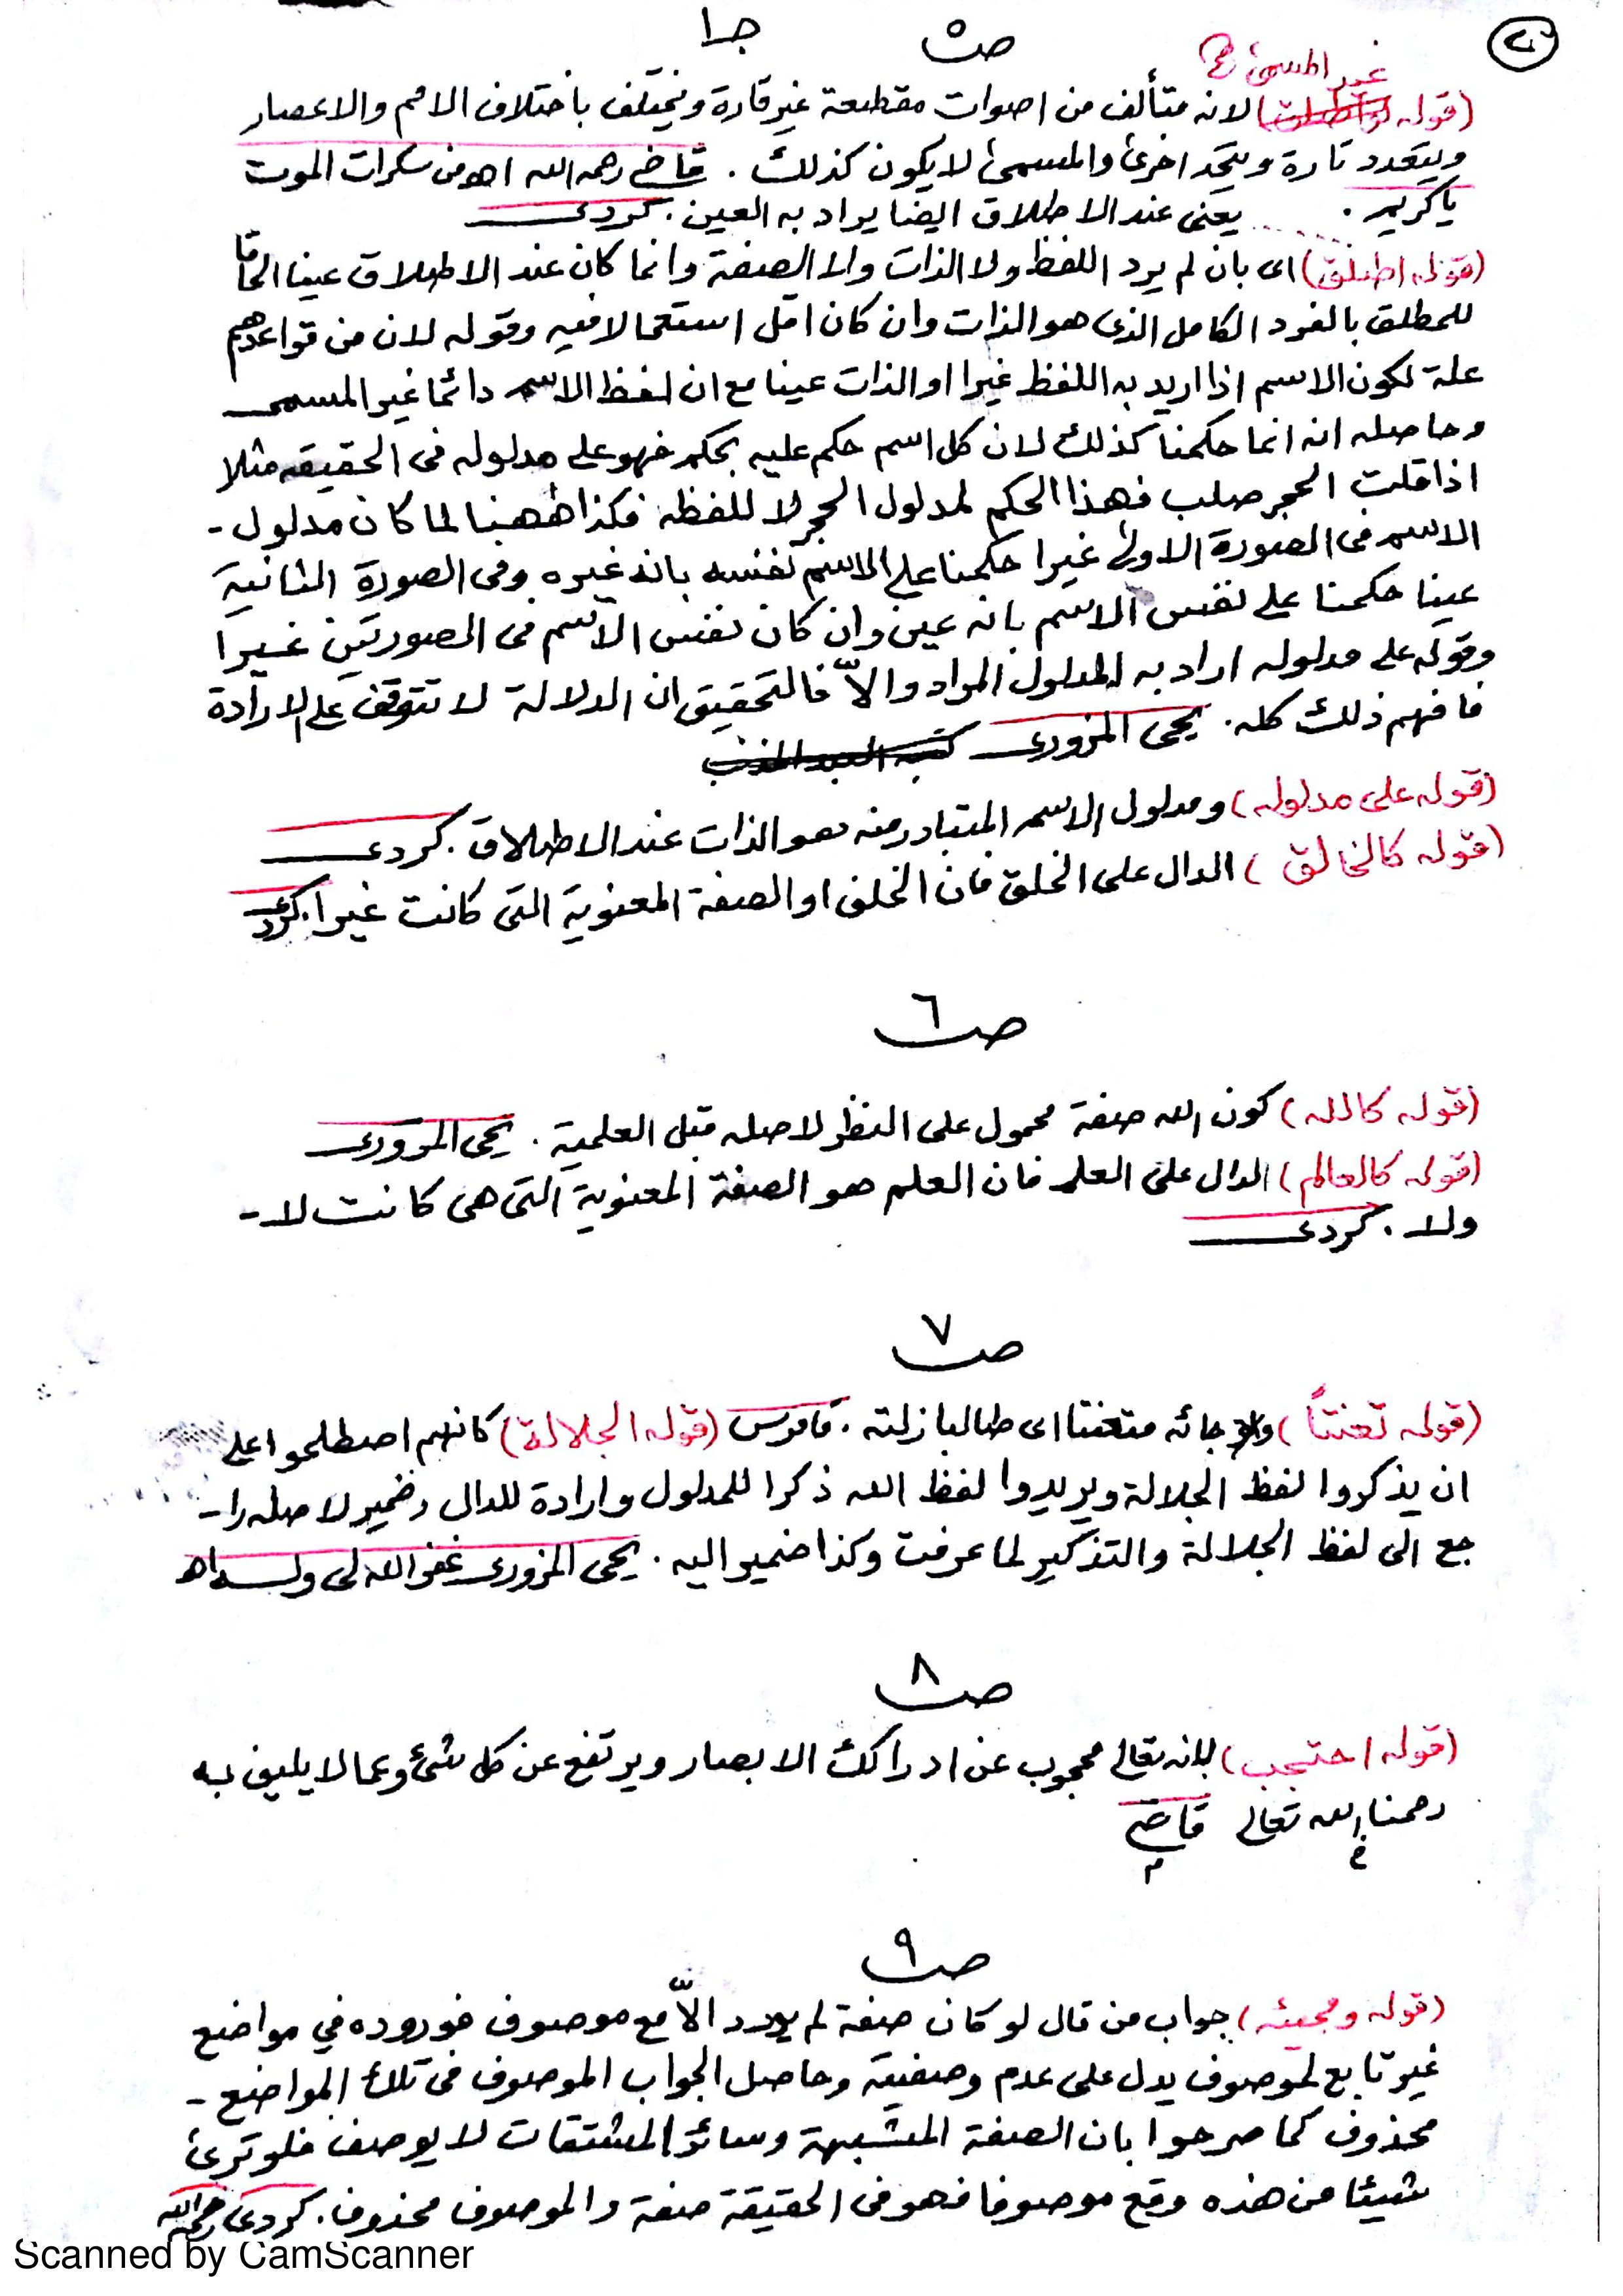 ٢٠
ص ٥ جـ١
غير المسمى
(قوله) لانه متألف من اصوات مقطعة غير قارة ويختلف باختلاف الامم والاعصار
ويتعدد تارة ويتحد اخرى والمسمى لا يكون كذلك . قاضى رحمه الله اهـ من سكرات الموت
يا كريم . يعنى عند الاطلاق ايضا يراد به العين . كردى
(قوله اطلق) اى بان لم يرد اللفظ ولا الذات ولا الصفة وانما كان عند الاطلاق عينا الحاقا
للمطلق بالفرد الكامل الذى هو الذات وان كان اقل استعمالا فيه وقوله لان من قواعدهم
علة لكون الاسم اذا اريد به اللفظ غيرا او الذات عينا مع ان لفظ الاسم دائما غير المسمى
وحاصله انه انما حكمنا كذلك لان كل اسم حكم عليه بحكم فهو على مدلوله فى الحقيقه مثلا
اذا قلت الحجر صلب فهذا الحكم لمدلول الحجر لا للفظه فكذا ههنا لما كان مدلول -
الاسم فى الصورة الاولى غيرا حكمنا على الاسم نفسه بانه غيره وفى الصورة الثانية
عينا حكمنا على نفس الاسم بانه عين وان كان نفس الاسم فى الصورتين غيرا
وقوله على مدلوله اراد به المدلول المراد والاّ فالتحقيق ان الدلالة لا تتوقف على الارادة
فافهم ذلك كله . يحى المزورى كتبه العبد المذنب
(قوله على مدلوله) ومدلول الاسم المتبادر منه هو الذات عند الاطلاق . كردى
(قوله كالخالق) الدال على الخلق فان الخلق او الصفة المعنوية التى كانت غيرا . كردى
ص ٦
(قوله كالله) كون الله صفة محمول على النظر لاصله قبل العلمية . يحى المزورى
(قوله كالعالم) الدال على العلم فان العلم هو الصفة المعنوية التى هى كانت لا -
ولا . كردى
ص ٧
(قوله تعنتاً) جائه متعنتا اى طالبا زلته . قاموس (قوله الجلالة) كانهم اصطلحوا على
ان يذكروا لفظ الجلالة ويريدوا لفظ الله ذكرا للمدلول وارادة للدال وضمير لاصله را -
جع الى لفظ الجلالة والتذكير لما عرفت وكذا ضمير اليه . يحى المزورى غفر الله لى وله اهـ
ص ٨
(قوله احتجب) لانه تعالى محجوب عن ادراك الابصار ويرتفع عن كل شئ وعما لا يليق به
رحمنا الله تعالى قاضى
ص ٩
(قوله ومجيئه) جواب من قال لو كان صفة لم يورد الاّ مع موصوف فوروده في مواضع
غير تابع لموصوف يدل على عدم وصفيته وحاصل الجواب الموصوف فى تلك المواضع -
محذوف كما صرحوا بان الصفة المشبهة وسائر المشتقات لا يوصف فلو ترى
شيئا من هذه وقع موصوفا فهو فى الحقيقة صفة والموصوف محذوف . كردى رحمه الله
Scanned by CamScanner